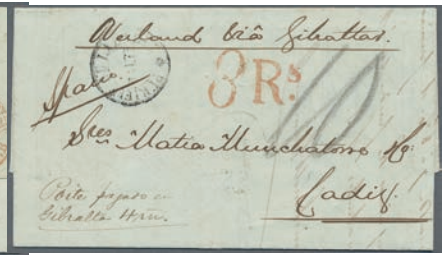 Overland viâ Gibraltar.
Spain
3 Rs.
10
Sres Matia Munchatorre
Cadiz.
Porte pagado en
Gibraltar 4 rn.